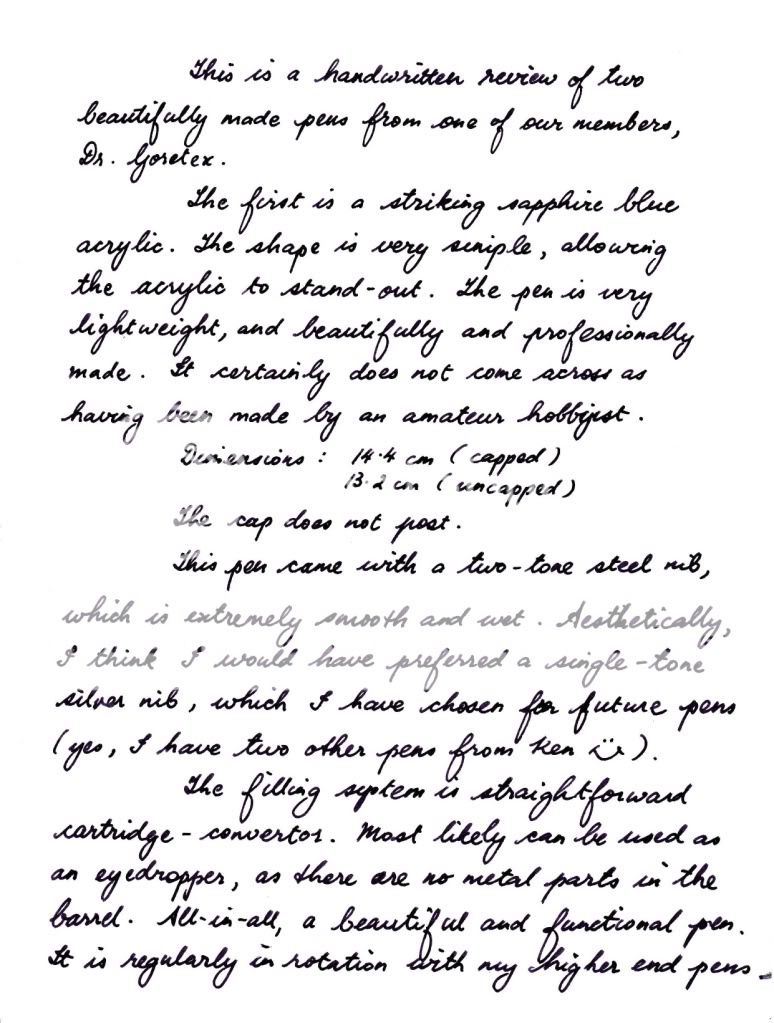 This is a handwritten review of two
beautifully made pens from one of our members,
Dr. Goretex.
The first is a striking sapphire blue
acrylic. The shape is very simple, allowing
the acrylic to stand-out. The pen is very
lightweight, and beautifully and professionally
made. It certainly does not come across as
having been made by an amateur hobbyist.
Dimensions : 14.4 cm (capped)
13.2 cm (uncapped)
The cap does not post.
This pen came with a two-tone steel nib,
which is extremely smooth and wet. Aesthetically,
I think I would have preferred a single-tone
silver nib, which I have chosen for future pens
(yes, I have two other pens from Ken ツ).
The filling system is straightforward
cartridge-convertor. Most likely can be used as
an eyedropper, as there are no metal parts in the
barrel. All-in-all, a beautiful and functional pen.
It is regularly in rotation with my higher end pens.